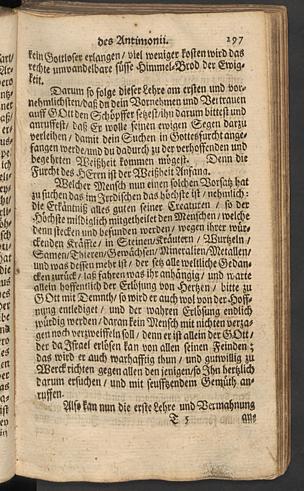 des Antimonii. 297
kein Gottloser erlangen / viel weniger kosten wird das
rechte unwandelbare süsse Himmel-Brod der Ewig-
keit.
Darum so folge dieser Lehre am ersten und vor-
nehmlichsten / daß du dein Vornehmen und Vertrauen
auff GOtt den Schöpffer setzest / ihn darum bittest und
anruffest / daß Er wolle seinen ewigen Segen darzu
verleihen / damit dein Suchen in Gottesfurcht ange-
fangen werde / und du dadurch zu der verhoffenden und
begehrten Weißheit kommen mögest. Denn die
Furcht des HErrn ist der Weißheit Anfang.
Welcher Mensch nun einen solchen Vorsatz hat
zu suchen das im Irrdischen das höchste ist / nehmlich:
die Erkäntniß alles guten seiner Creaturen / so der
Höchste mildiglich mitgetheilet den Menschen / welche
denn stecken und befunden werden / wegen ihrer wür-
ckenden Kräffte / in Steinen / Kräutern / Wurtzeln /
Samen / Thieren / Gewächsen / Mineralien / Metallen /
und was dessen mehr ist / der setz alle weltliche Gedan-
cken zurück / laß fahren was ihr anhängig / und warte
allein hoffentlich der Erlösung von Hertzen / bitte zu
GOtt mit Demuth / so wird er auch wol von der Hoff-
nung entlediget / und der wahren Erlösung endlich
würdig werden / daran kein Mensch mit nichten verza-
gen noch verzweiffeln soll / denn er ist allein der GOtt /
der da Israel erlösen kan von allen seinen Feinden:
das wird er auch warhafftig thun / und gunwillig zu
Werck richten gegen allen den jenigen / so Ihn hertzlich
darum ersuchen / und mit seufftzendem Gemüth an-
ruffen.
Also kan nun die erste Lehre und Vermahnung
T 5 an-